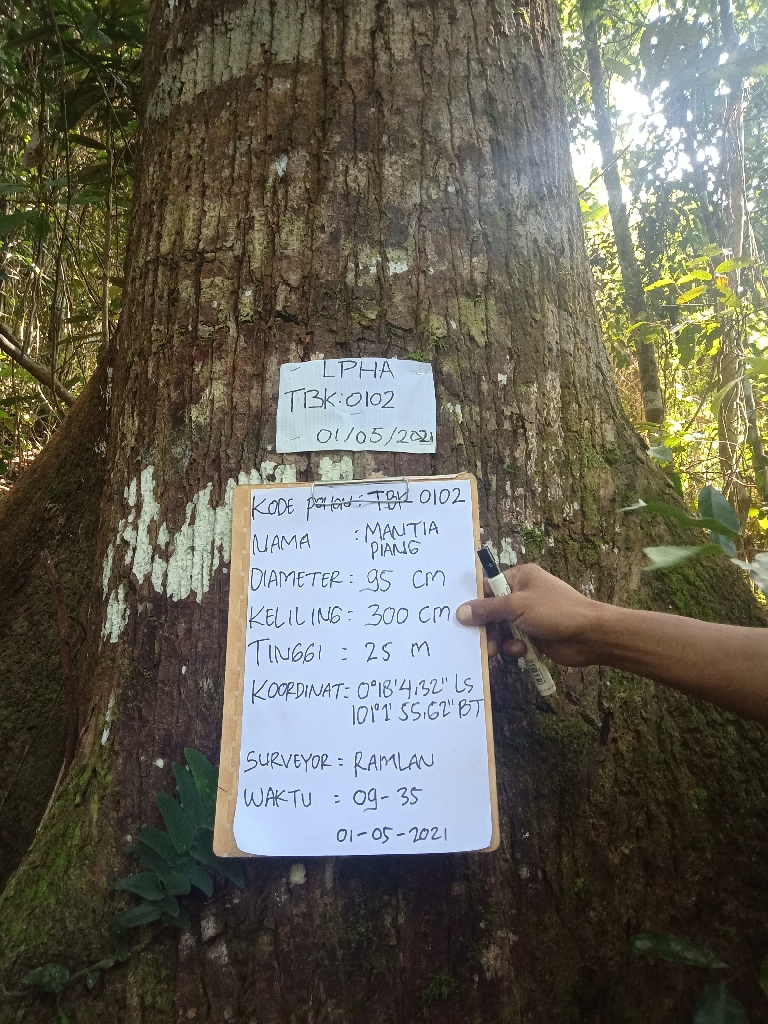 LPHA
TBK:0102
01/05/2021
KODE pohon : TBK 0102
NAMA : MANTIA
PIANG
DIAMETER : 95 CM
KELILING : 300 CM
TINGGI : 25 M
KOORDINAT = 0°18'4,32" LS
101°1' 55,62" BT
SURVEYOR = RAMLAN
WAKTU = 09-35
01-05-2021